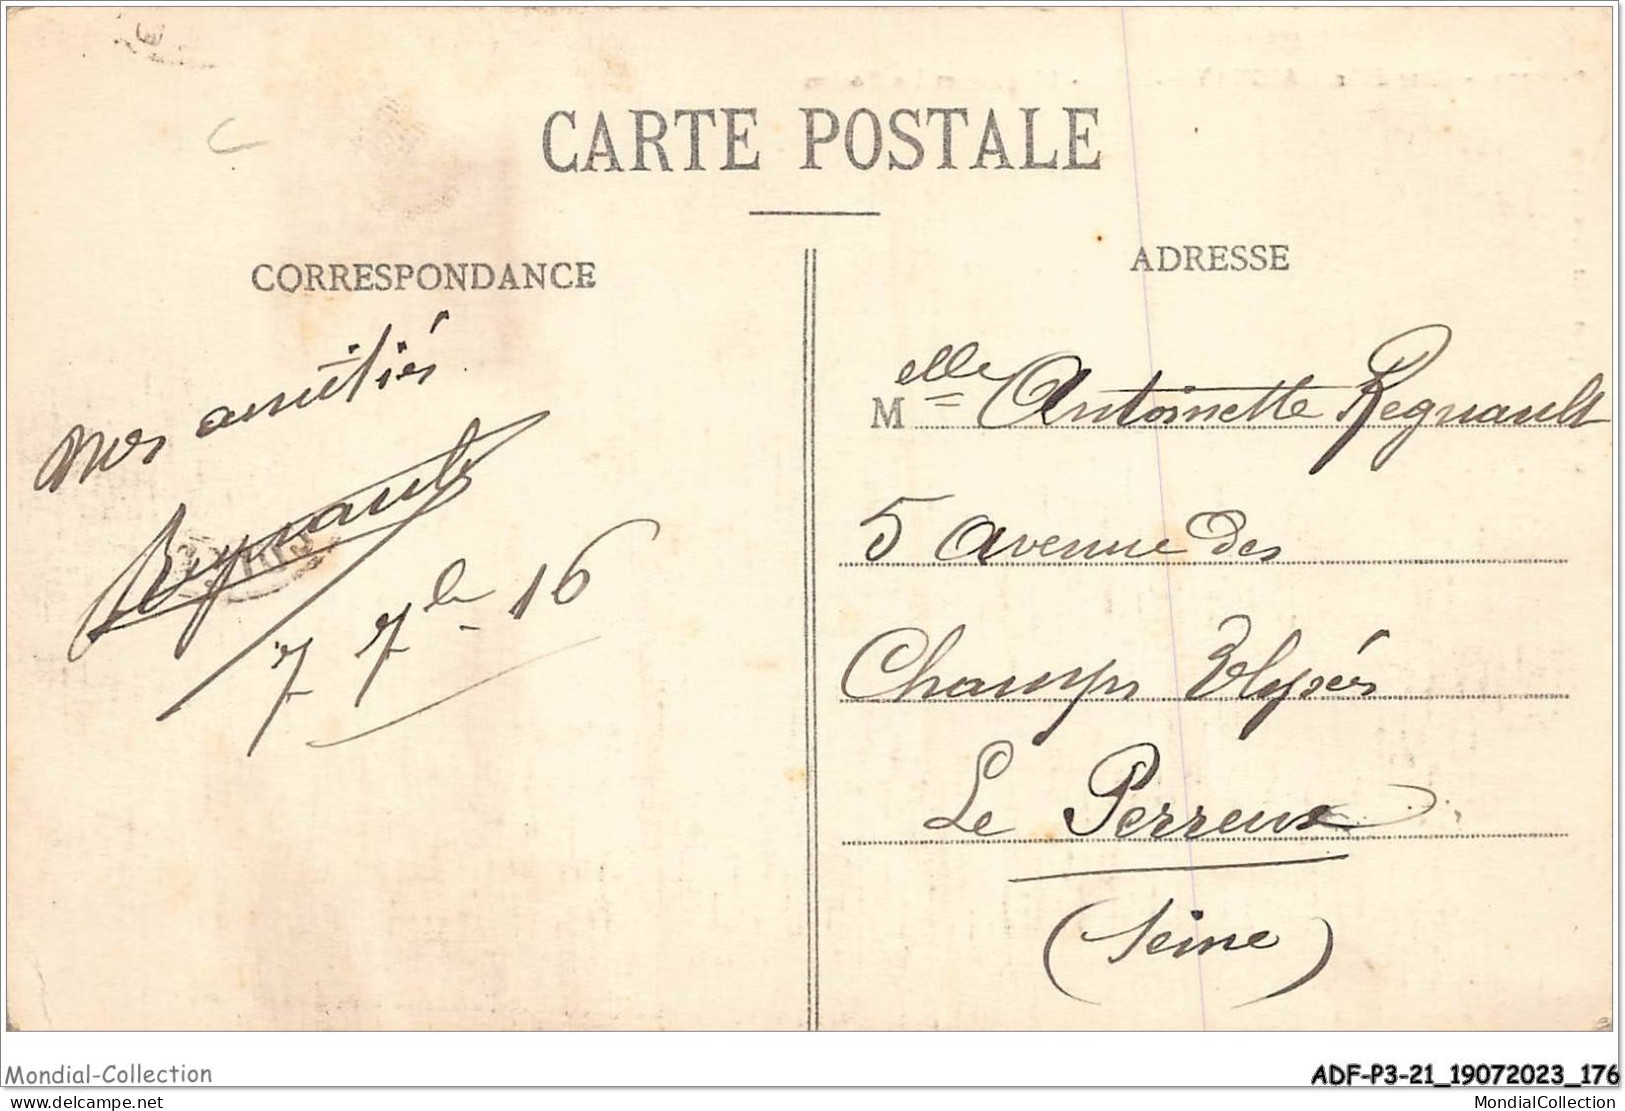 CARTE POSTALE
CORRESPONDANCE
ADRESSE
Mes amitiés
Regnault
7 7bre 16
Melle Antoinette Regnault
5 Avenue des
Champs Elysées
Le Perreux
(Seine)
Mondial-Collection
ADF-P3-21_19072023_176
www.delcampe.net
MondialCollection